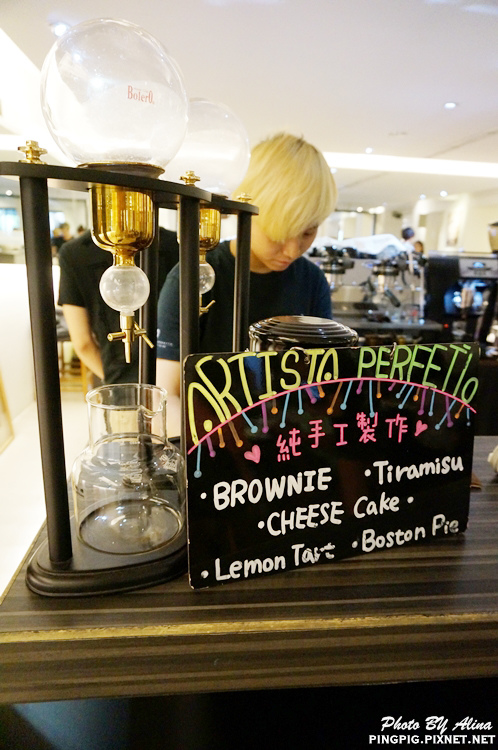 BolerO.
ARTISTA PERFETTO
純手工製作
·BROWNIE ·Tiramisu
·CHEESE Cake·
·Lemon Tart ·Boston Pie
Photo BY Alina
PINGPIG.PIXNET.NET